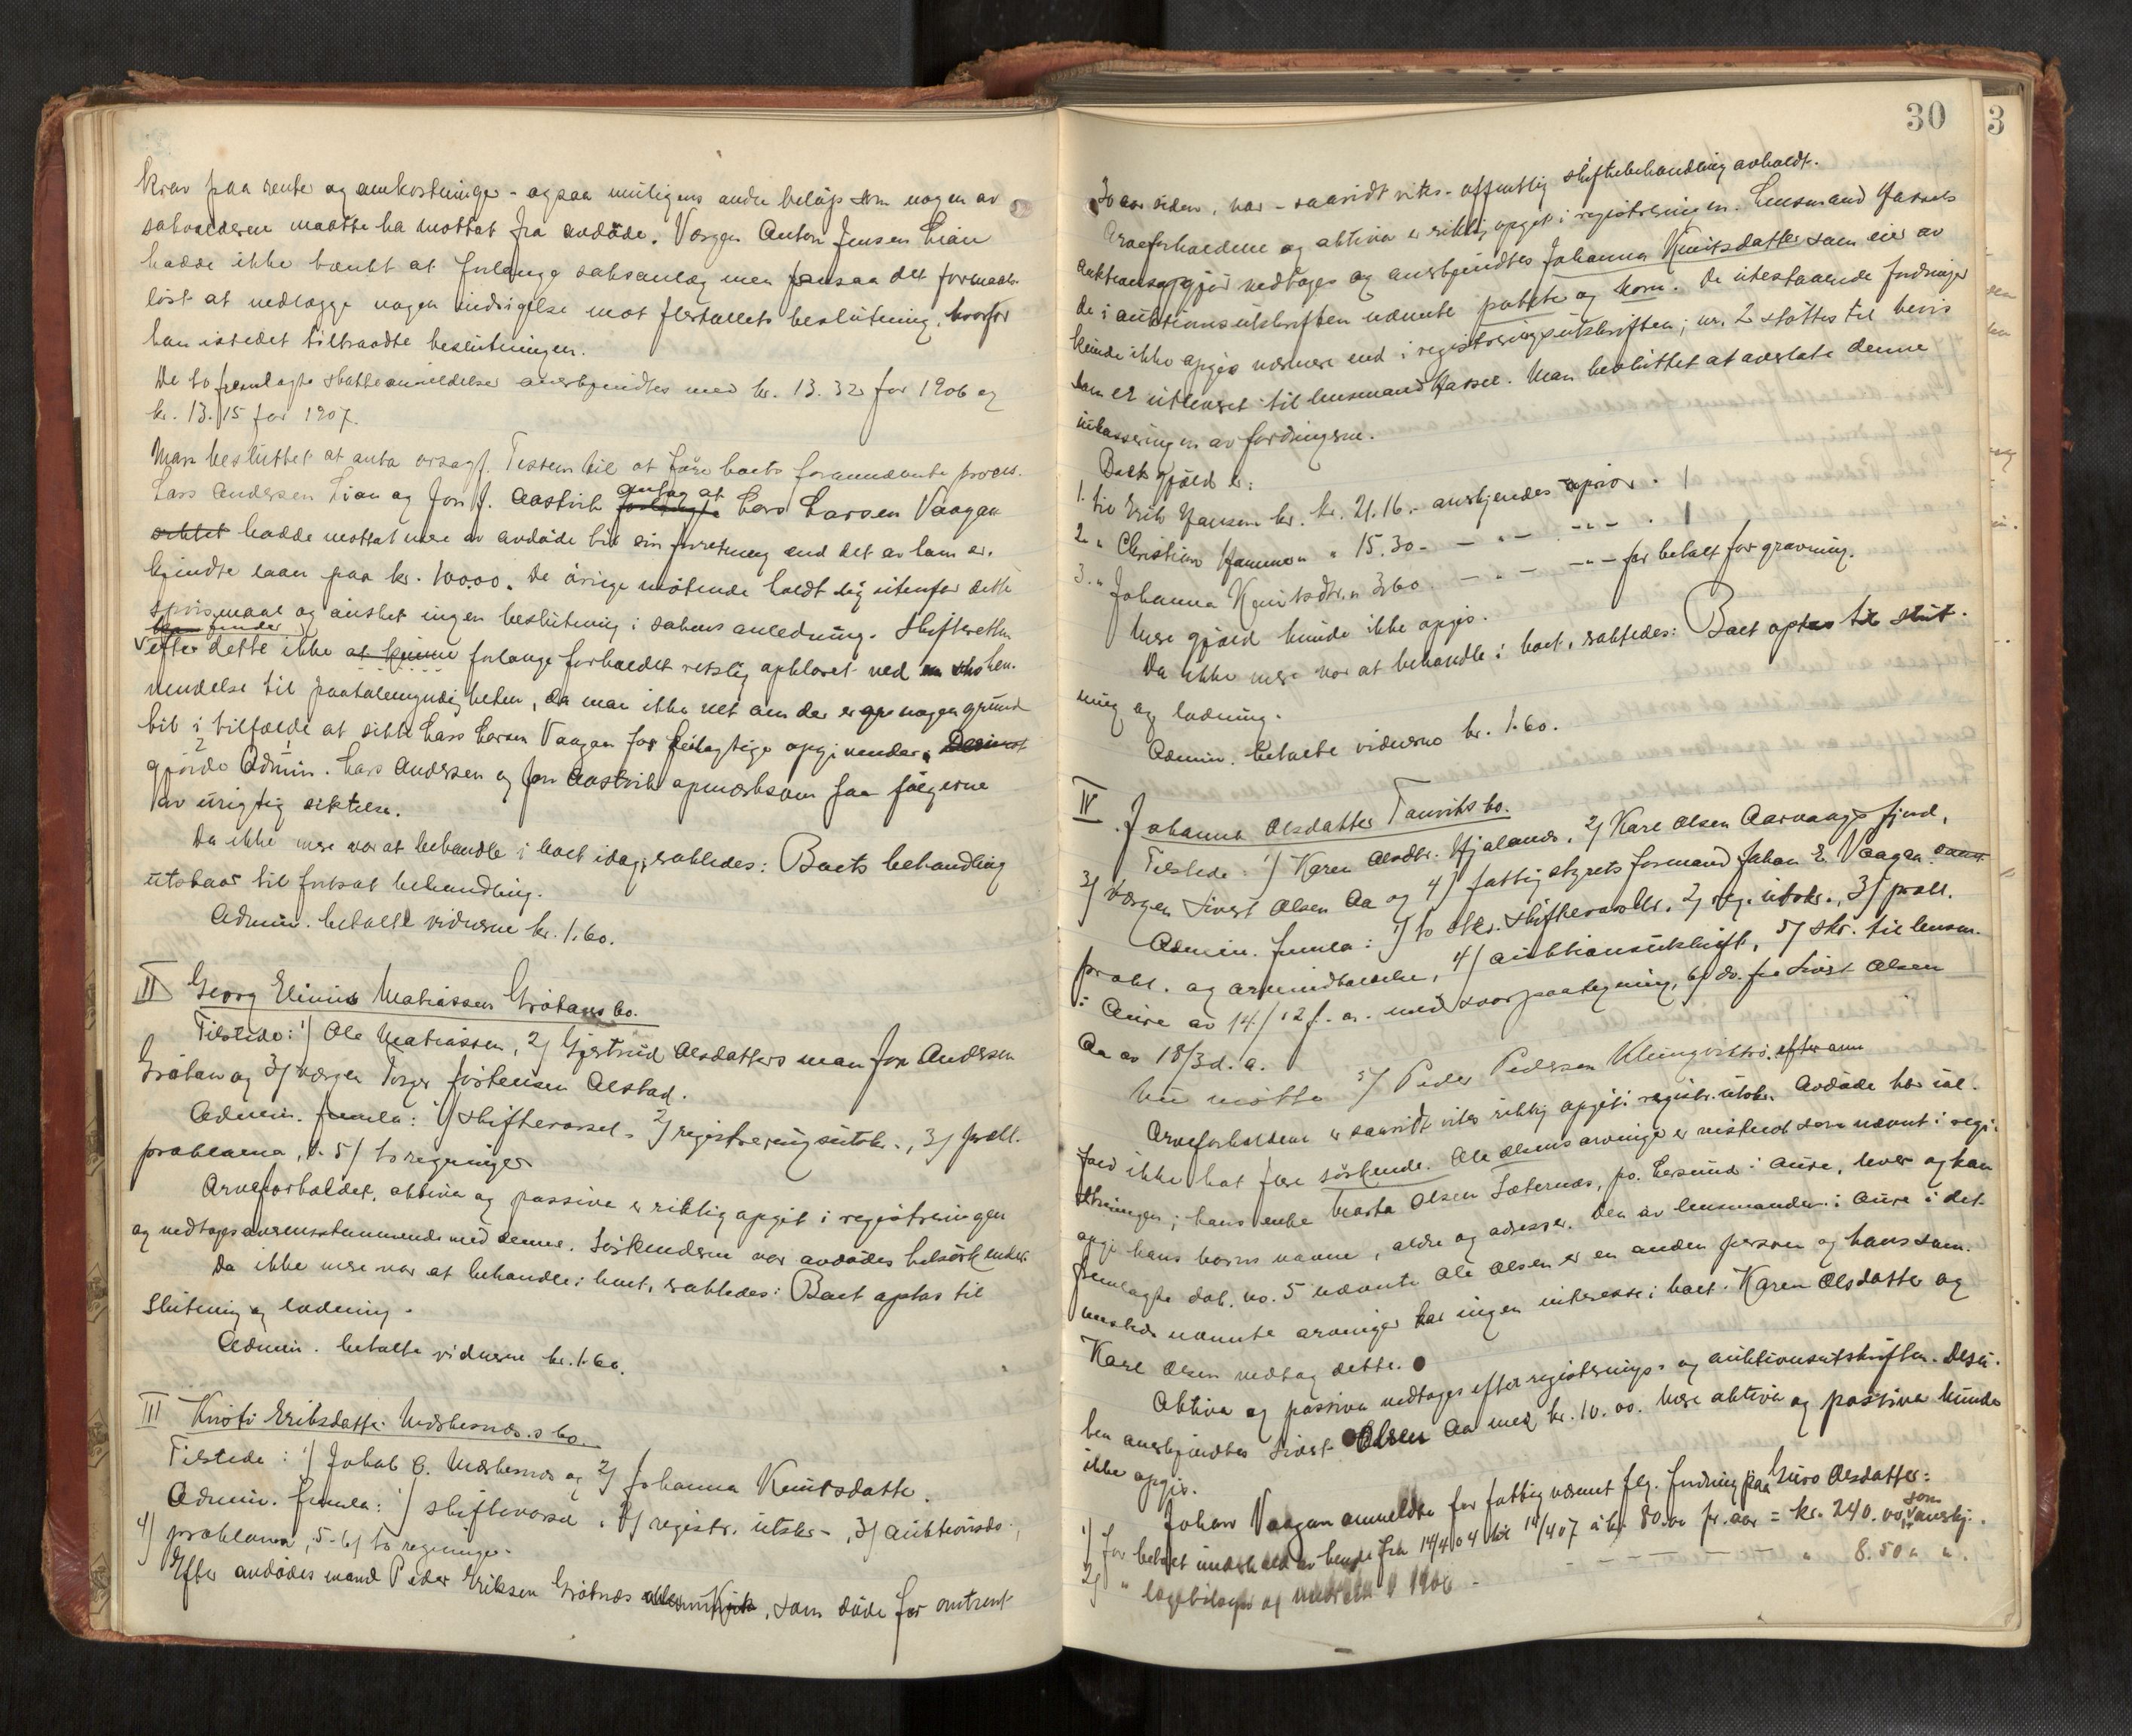 krav paa rente og omkostninger - ogsaa muligens andre beløp som nogen av
saksvolderen maatte ha mottat fra avdøde. Værgen Anton Jensen Lian
hadde ikke tænkt at forlange saksanlæg men fansaa det formaals-
løst at nedlægge nogen indsigelse mot flertallets beslutning, hvorfor
han istedet tiltraadte beslutningen.
De to fremlagte skatteanmeldelser anerkjendtes med kr. 13.32 for 1906 og
kr. 13.15 for 1907.
Man besluttet at anta orsagf. Testem til at føre boets forannævnte proces.
Lars Andersen Lian og Jon J. Aastvik antog at Lars Larsen Vaagan
hadde mottat mere av avdøde til sin forretning end det av ham er-
kjendte laan paa kr. 1000.00. De øvrige møtende holdt sig utenfor dette
spørsmaal og ønsket ingen beslutning i sakens anledning. Skifteretten
finder
efter dette ikke at kunne forlange forholdet retslig opklaret ved hen-
vendelse til paatalemyndigheten, da man ikke vet om der er nogen grund
til i tilfælde at sikte Lars Larsen Vaagan for feilagtige opgivender.
gjorde Admin. Lars Andersen og Jon Aastvik opmerksom paa følgerne
av urigtig siktelse.
Da ikke mere var at behandle i boet idag, sattedes: Boets behandling
utstaar til fortsat behandling.
Admin. betalte vidnerne kr. 1.60.
II Georg Elinius Matiassen Grøtans bo.
Tilstede: 1) Ole Matiassen, 2) Gjertrud Olsdatters man Jon Andersen
Grøtan og 3) værgen Torger Jostensen Alstad.
Admin. fremla: 1) skiftevarsel, 2) registreringsutskr., 3) prokl.
proklama, 4-5) to regninger
Arveforholdet, aktiva og passiva er riktig opgit i registreringen
og vedtages overensstemmende med denne. Søskenderne var avdødes helsøskender.
Da ikke mere var at behandle i boet, sattedes: Boet optas til
slutning og lodning.
Admin. betalte vidnerne kr. 1.60.
III Kirsti Eriksdatter Mærkesnæs's bo.
Tilstede: 1) Jakob E. Mærkesnæs og 2) Johanna Knutsdatter.
Admin. fremla: 1) skiftevarsel, 2) registr. utskr., 3) auktionsdo.,
4) proklama, 5-6) to regninger.
Efter avdødes mand Peder Eriksen Grøtnæs, som døde for omtrent
30
30 aar siden, var - saavidt vites - offentlig skiftebehandling avholdt.
Arveforholdene og aktiva er riktig opgit i registreringen. Lensmand Hassels
auktionsopgjør vedtages og anerkjendtes Johanna Knutsdatter som eier av
de i auktionsutskriften nævnte potete og korn. De utestaaende fordringer
kunde ikke opgis nærmere end i registreringsutskriften; nr. 2 støttes til bevis
som er utleveret til lensmand Hassel. Man besluttet at overlate denne
inkasseringen av fordringerne.
Boets gjæld er:
1. til Erik Hansen kr. kr. 21.16.- anerkjendes apriori.
2. " Christian Hammen " 15.30 - — " — — " —
3. " Johanna Knutsdtr. " 3.60 — " — — " — for betalt for gravning.
Mere gjæld kunde ikke opgis.
Da ikke mere var at behandle i boet, sattedes: Boet optas til slut-
ning og lodning.
Admin. betalte vidnerne kr. 1.60.
IV. Johanna Olsdatter Tanviks bo.
Tilstede: 1) Karen Olsdtr. Hjalands, 2) Karl Olsen Aarvaagsfjord,
3) værgen Sivert Olsen Aa og 4) fattigstyrets formand Johan E. Vaagan
Admin. fremla: 1) to skr. skiftevarsler, 2) reg. utskr., 3) prokl.
prokl. og arveindkaldelse, 4) auktionsutskrift, 5) skr. til lensm.
i Aure av 14/12 f. a. med svarpaategning, 6) do. fra Sivert Olsen
Aa av 18/3 d. a.
Nu møtte 5) Peder Pedersen Klungvikbø. efter ann
Arveforholdene er saavidt vites riktig opgit i registr. utskr. Avdøde har ial-
fald ikke hat flere søskende. Ole Olsens arvinger er neistend som nævnt i regi-
streringen; hans enke Marta Olsen Sæternæs, po. Lesund i Aure, lever og kan
opgi hans barns navne, alder og adresser. Den av lensmanden i Aure i det
fremlagte dok. no. 5 nævnte Ole Olsen er en anden person og hans sam-
mesteds nævnte arvinger har ingen interesse i boet. Karen Olsdatter og
Karl Olsen vedtog dette.
Aktiva og passiva vedtages efter registrerings- og auktionsutskriften. Desu-
ten anerkjendtes Sivert Olsen Aa med kr. 10.00. Mere aktiva og passiva kunde
ikke opgis.
Johan Vaagan anmeldte for fattigvæsnet flg. fordring paa Guro Olsdatter:
1) for betalt underhold av hende fra 14/4 04 til 14/4 07 à kr. 80.00 pr. aar = kr. 240.00, som anerkj.
2) " lægetilsyn og medicin i 1906 - — — — — " 8.50 " ".